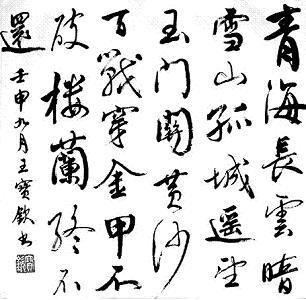 青海長雲暗
雪山孤城遥望
玉門關黄沙
百戰穿金甲不
破樓蘭終不
還
壬申九月王寶欽書